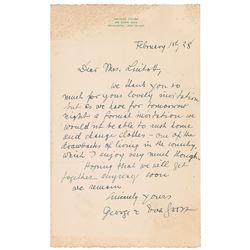 February 1st, 38
Dear Mrs.
We thank you so
much for your lovely invitation
but as we have for tomorrow
night a formal invitation we
wouldn't be able to rush home
and change clothes - one of the
drawbacks of living in the country,
which I enjoy very much though.
Hoping that we will get
together anyway soon
we remain
Sincerely Yours
George